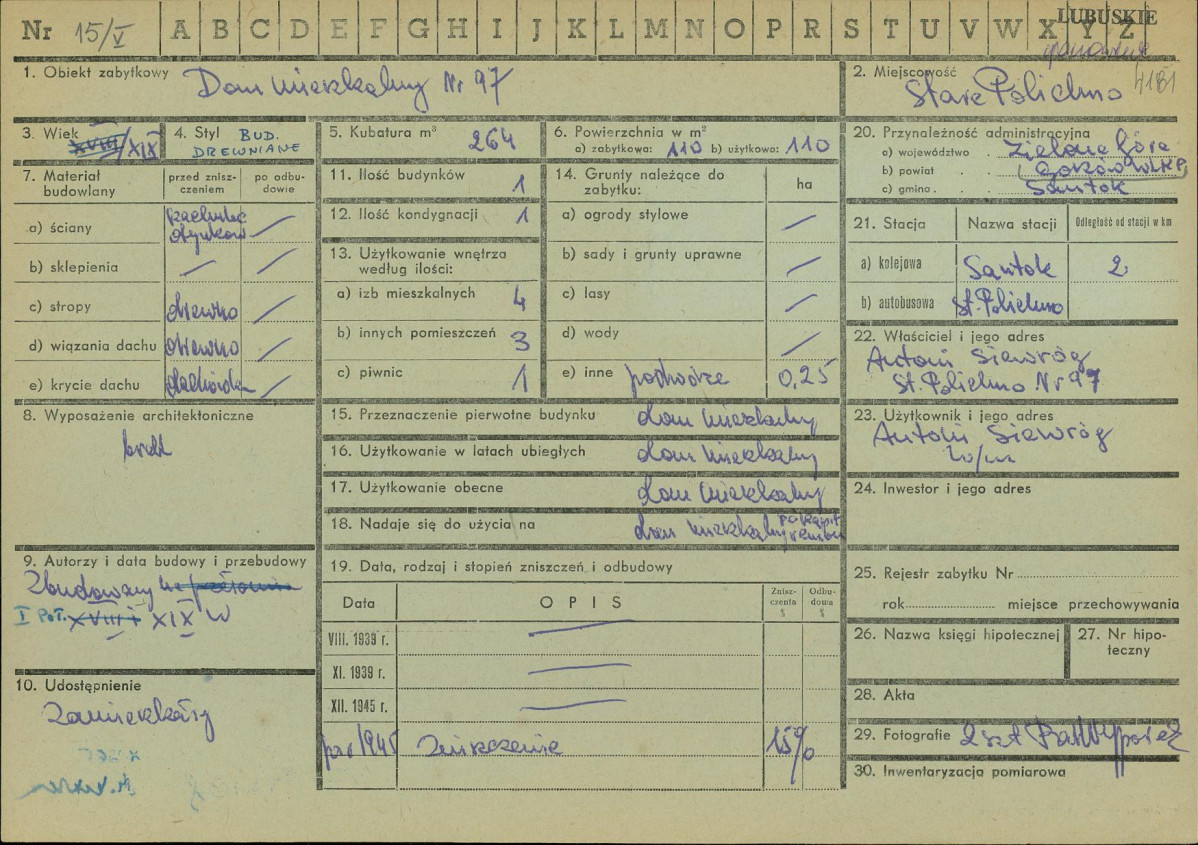 Nr 15/V A B C D E F G H I J K L M N O P R S T U V W X Y Z LUBUSKIE
4181
1. Obiekt zabytkowy Dom mieszkalny Nr 97
2. Miejscowość
Stare Polichno
3. Wiek XVIII/XIX
4. Styl BUD.
DREWNIANE
5. Kubatura m³ 264
6. Powierzchnia w m²
a) zabytkowa: 110 b) użytkowa: 110
20. Przynależność administracyjna
a) województwo Zielona Góra
b) powiat Gorzów WLKP
c) gmina Santok
7. Materiał budowlany
przed znisz-
czeniem
po odbu-
dowie
a) ściany
b) sklepienia
c) stropy drewno
d) wiązania dachu drewno
e) krycie dachu dachówka
11. Ilość budynków 1
12. Ilość kondygnacji 1
13. Użytkowanie wnętrza
według ilości:
a) izb mieszkalnych 4
b) innych pomieszczeń 3
c) piwnic 1
14. Grunty należące do
zabytku:
ha
a) ogrody stylowe
b) sady i grunty uprawne
c) lasy
d) wody
e) inne podwórze 0,25
21. Stacja Nazwa stacji Odległość od stacji w km
a) kolejowa Santok 2
b) autobusowa St. Polichno
22. Właściciel i jego adres
Antoni Siewróg
St. Polichno Nr 97
8. Wyposażenie architektoniczne
15. Przeznaczenie pierwotne budynku dom mieszkalny
16. Użytkowanie w latach ubiegłych dom mieszkalny
17. Użytkowanie obecne dom mieszkalny
18. Nadaje się do użycia na dom mieszkalny po kapit. remoncie
23. Użytkownik i jego adres
Antoni Siewróg
w/m
24. Inwestor i jego adres
9. Autorzy i data budowy i przebudowy
Zbudowany na przełomie
I POŁ. XVIII i XIX w
19. Data, rodzaj i stopień zniszczeń i odbudowy
Data OPIS Znisz-
czenia
% Odbu-
dowa
%
VIII. 1939 r.
XI. 1939 r.
XII. 1945 r.
po r 1945 zniszczenie 15%
25. Rejestr zabytku Nr
rok miejsce przechowywania
26. Nazwa księgi hipotecznej
27. Nr hipo-
teczny
10. Udostępnienie
Zamieszkały
28. Akta
29. Fotografie 2 szt
30. Inwentaryzacja pomiarowa